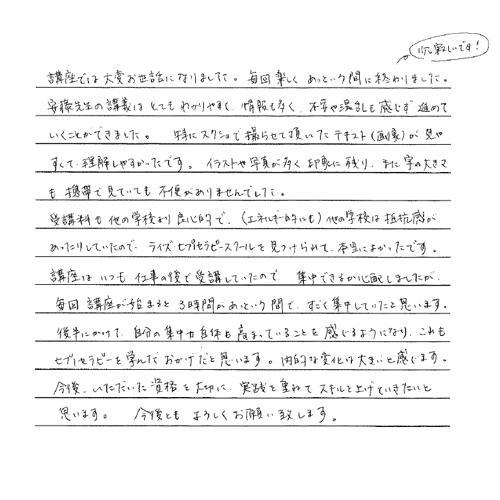 心寂しいです!
講座では大変お世話になりました。毎回楽しく、あっという間に終わりました。
安藤先生の講義はとてもわかりやすく、情報も多く、不安や混乱も感じず進めて
いくことができました。 特にスクショで撮らせて頂いたテキスト(画像)が見や
すくて理解しやすかったです。イラストや写真が多く印象に残り、また字の大きさ
も携帯で見ていても不便がありませんでした。
受講料も他の学校より良心的で、(エネルギー的にも)他の学校は抵抗感が
あったりしていたので、ライズセブセラピースクールを見つけられて、本当によかったです。
講座はいつも仕事の後で受講していたので、集中できるか心配しましたが、
毎回講座が始まると3時間があっという間で、すごく集中していたと思います。
後半にかけて、自分の集中力自体も高まっていることを感じるようになり、これも
セブセラピーを学んだおかげだと思います。内的な変化は大きいと感じます。
今後、いただいた資格を大切に、実践を重ねてスキルを上げていきたいと
思います。 今後ともよろしくお願い致します。